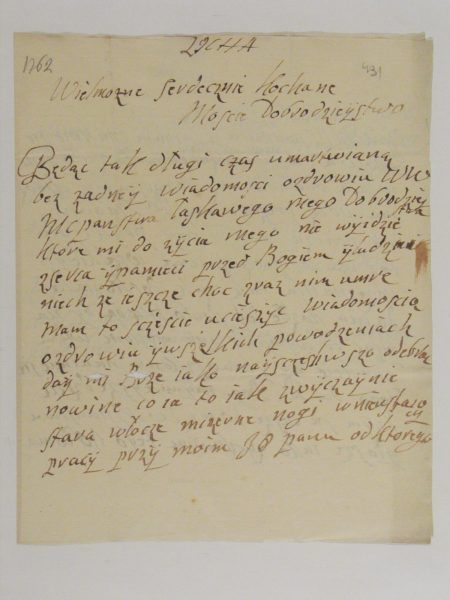 1762
431
Wielmozne serdecznie Kochane
Moscie Dobrodzieystwo
Będąc tak długi czas umartwiona
bez zadney wiadomosci ozdrowiu WW
MCpanstwa łaskawego mego Dobrodziey
ktore mi do zycia mego nie wyidzie
zserca ypamieci przed Bogiem yludzmi
niech ze ieszcze choc zraz nim umre
mam to sczęscie ucieszyc wiadomoscią
ozdrowiu ywszelkich powodzeniach
day mi Boze iako nayszczesliwszą odebrac
nowine co ia to iak zwyczaynie
stara włocze mizerne nogi wnieustaiący
pracy przy moim JO panu od ktorego